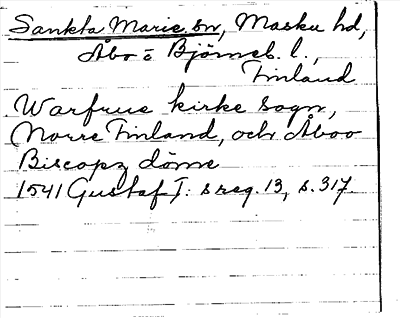 Sankta Marie sn, Masku hd,
Åbo o Björneb. l.,
Finland
Warfrue kirke sogn,
Norre Finland, och Åboo
Biscopz döme
1541 Gustaf I: s reg. 13, s. 317.